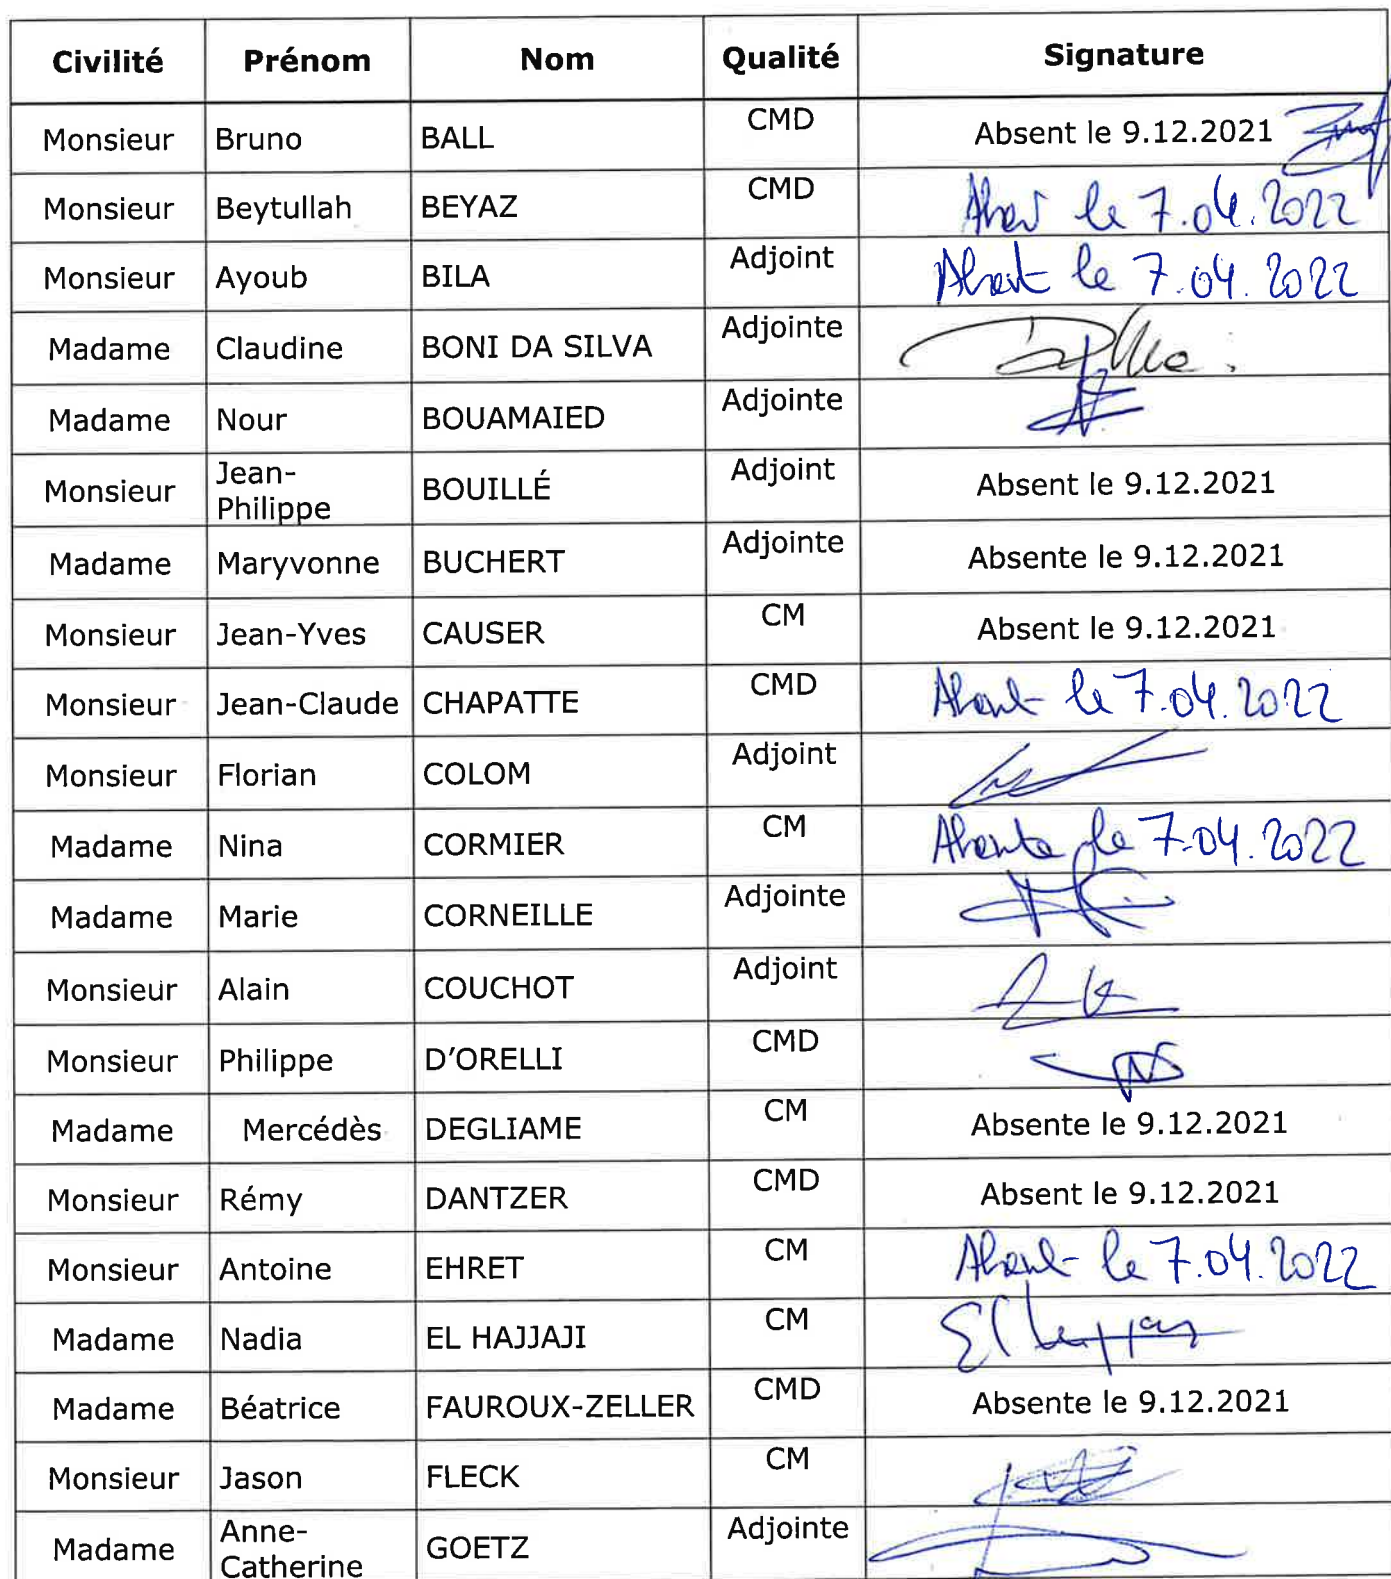 Civilité Prénom Nom Qualité Signature
Monsieur Bruno BALL CMD Absent le 9.12.2021
Monsieur Beytullah BEYAZ CMD le 7.04.2022
Monsieur Ayoub BILA Adjoint Absent le 7.04.2022
Madame Claudine BONI DA SILVA Adjointe
Madame Nour BOUAMAIED Adjointe
Monsieur Jean-
Philippe BOUILLÉ Adjoint Absent le 9.12.2021
Madame Maryvonne BUCHERT Adjointe Absente le 9.12.2021
Monsieur Jean-Yves CAUSER CM Absent le 9.12.2021
Monsieur Jean-Claude CHAPATTE CMD Absent le 7.04.2022
Monsieur Florian COLOM Adjoint
Madame Nina CORMIER CM Absente le 7.04.2022
Madame Marie CORNEILLE Adjointe
Monsieur Alain COUCHOT Adjoint
Monsieur Philippe D'ORELLI CMD
Madame Mercédès DEGLIAME CM Absente le 9.12.2021
Monsieur Rémy DANTZER CMD Absent le 9.12.2021
Monsieur Antoine EHRET CM Absent le 7.04.2022
Madame Nadia EL HAJJAJI CM
Madame Béatrice FAUROUX-ZELLER CMD Absente le 9.12.2021
Monsieur Jason FLECK CM
Madame Anne-
Catherine GOETZ Adjointe